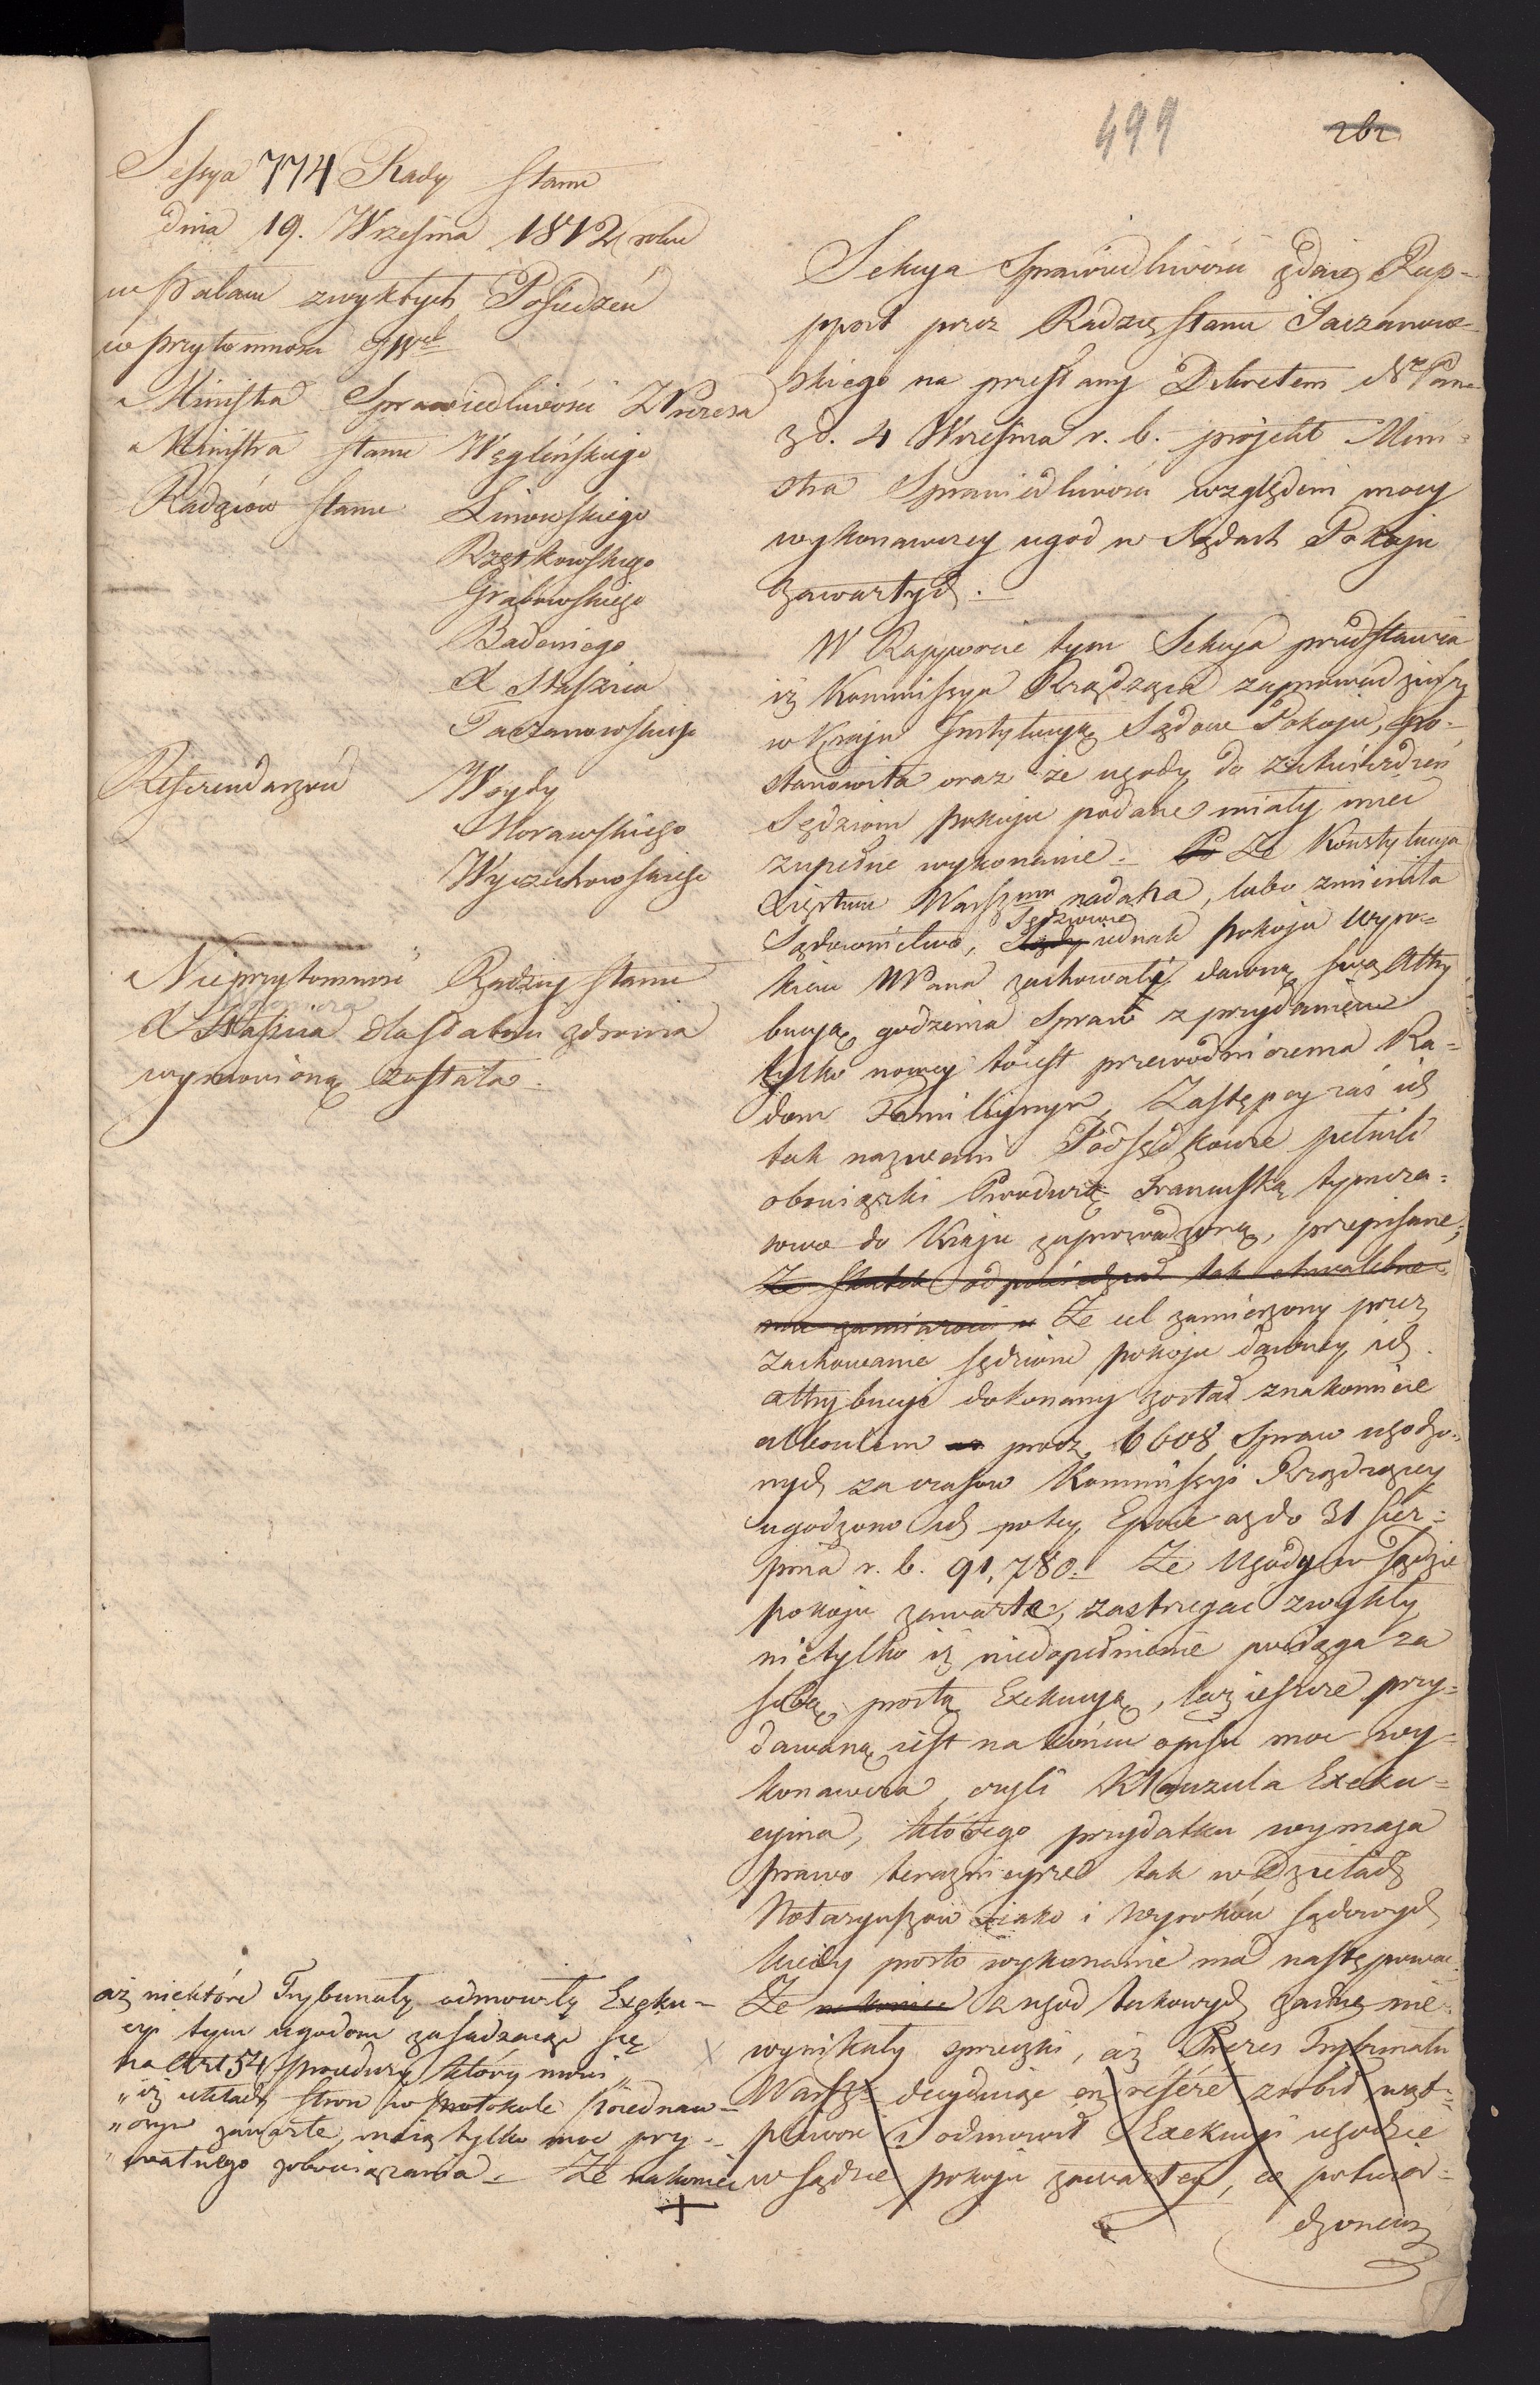 499
262
Sessya 774 Rady Stanu
dnia 19. Wrzesnia 1812 roku
w Pałacu zwykłych Posiedzeń
w przytomności JWch
Ministra Sprawiedliwości ZPrezesa
Ministra Stanu Węgleńskiego
Radzców Stanu Linowskiego
Rzętkowskiego
Grabowskiego
Badeniego
X Staszica
Taczanowskiego
Referendarzów Woydy
Morawskiego
Wyczechowskiego
Nieprzytomność Radzcy Stanu
X Staszica dla słabości zdrowia
wymówioną została.
Sekcya Sprawiedliwości zdaie Rap-
pport przez Radzcę Stanu Taczanow-
skiego na przesłany Dekretem Nr Pana
z d. 4 Wrzesnia r. b. projekt Mini-
stra Sprawiedliwości względem mocy
wykonawczey ugod w Sądach Pokoju
zawartych.
W Rapporcie tym Sekcya przedstawia
iż Kommissya Rządząca zaprowadziwszy
w Kraju Instytucyą Sądów Pokoju, po-
stanowiła oraz że ugody do zatwierdzeń
Sędziom pokoju podane miały mieć
zupełne wykonanie. Po Ze Konstytucya
Xięstwu Warszmu nadana, lubo zmieniła
Sądownictwo, Sądy Sędziowie iednak pokoju wyro-
kiem WPana zachowali dawną swą Attry
bucyą godzenia Spraw z przydaniem
tylko nowey toiest przewodniczenia Ra-
dom Familiynym, Zastępcy zaś ich
tak nazwani Podsędkowie pełnili
obowiązki Procedurą Francuską tymcza-
sowo do Kraju zaprowadzoną, przepisane;
Ze skutek odpowiedział tak chwalebne-
mu zamiarowi Ze cel zamierzony przez
zachowanie sędziom pokoju dawney ich
attrybucyi dokonany został znakomicie
albowiem procz 6608 Spraw ugodzo-
nych za czasów Kommissyi Rządzącey
ugodzono ich po tey Epoce aż do 31 Sier-
pnia r. b. 91,780. Ze Ugody w Sądzie
pokoju zawarte, zastrzegać zwykły
nietylko iż niedopełnienie pociąga za
sobą prostą Exekucyą, lecz ieszcze przy-
dawaną iest na końcu opisu moc wy-
konawcza, czyli Klauzula Exeku-
cyina, którego przydatku wymaga
prawo teraznieysze tak w Dziełach
Notaryuszów iako i Wyroków sądowych
kiedy prosto wykonanie ma następować.
Ze nakoniec z ugod takowych żadne nie
wynikały sprzeczki, aż Prezes Trybunału
Warsz. decyduiąc en reféré zrobił wąt-
pliwość i odmówił Exekucyi ugodzie
w sądzie pokoju zawartey, co potwier-
dzonem
aż niektóre Trybunały odmówiły Exeku-
cyi tym ugodom zasadzaiąc się
na Art 54 procedury który mówi
"iż układy stron w Protokule poiednaw-
"czym zawarte, maią tylko moc pry-
"watnego zobowiązania. Ze nakoniec